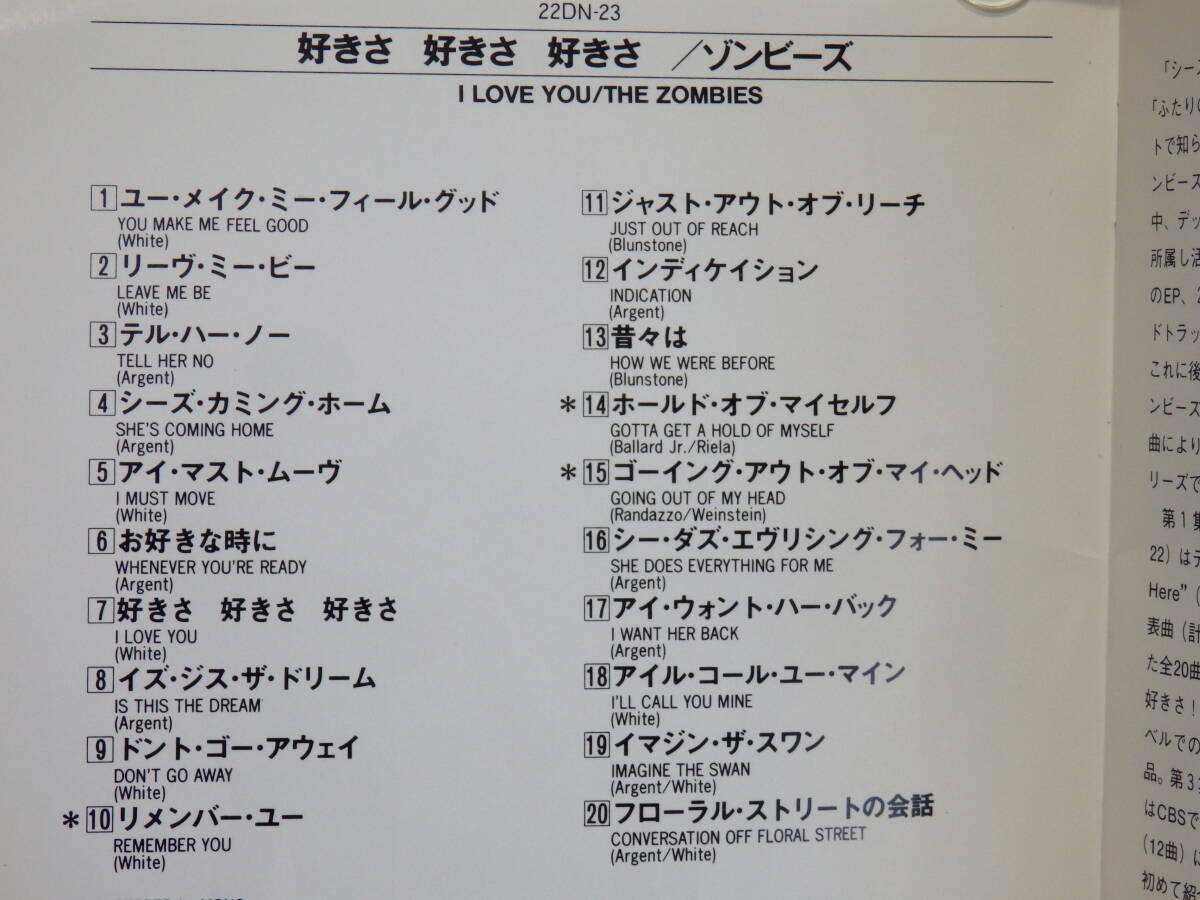 22DN-23
好きさ 好きさ 好きさ /ゾンビーズ
I LOVE YOU/THE ZOMBIES
1 ユー・メイク・ミー・フィール・グッド
YOU MAKE ME FEEL GOOD
(White)
2 リーヴ・ミー・ビー
LEAVE ME BE
(White)
3 テル・ハー・ノー
TELL HER NO
(Argent)
4 シーズ・カミング・ホーム
SHE'S COMING HOME
(Argent)
5 アイ・マスト・ムーヴ
I MUST MOVE
(White)
6 お好きな時に
WHENEVER YOU'RE READY
(Argent)
7 好きさ 好きさ 好きさ
I LOVE YOU
(White)
8 イズ・ジス・ザ・ドリーム
IS THIS THE DREAM
(Argent)
9 ドント・ゴー・アウェイ
DON'T GO AWAY
(White)
*10 リメンバー・ユー
REMEMBER YOU
(White)
11 ジャスト・アウト・オブ・リーチ
JUST OUT OF REACH
(Blunstone)
12 インディケイション
INDICATION
(Argent)
13 昔々は
HOW WE WERE BEFORE
(Blunstone)
*14 ホールド・オブ・マイセルフ
GOTTA GET A HOLD OF MYSELF
(Ballard Jr./Riela)
*15 ゴーイング・アウト・オブ・マイ・ヘッド
GOING OUT OF MY HEAD
(Randazzo/Weinstein)
16 シー・ダズ・エヴリシング・フォー・ミー
SHE DOES EVERYTHING FOR ME
(Argent)
17 アイ・ウォント・ハー・バック
I WANT HER BACK
(Argent)
18 アイル・コール・ユー・マイン
I'LL CALL YOU MINE
(White)
19 イマジン・ザ・スワン
IMAGINE THE SWAN
(Argent/White)
20 フローラル・ストリートの会話
CONVERSATION OFF FLORAL STREET
(Argent/White)
「シーズ
「ふたりの
トで知ら
ンビーズ
中、デッ
所属し活
のEP、2
ドトラッ
これに後
ンビーズ
曲により
リーズで
第1集
22）はデ
Here”(
表曲（計
た全20曲
好きさ!
ベルでの
品。第3集
はCBSで
(12曲) に
初めて紹